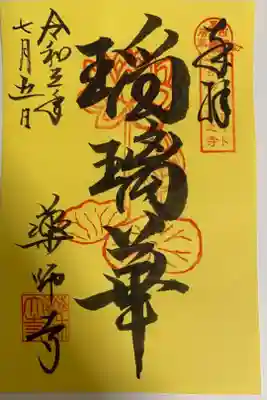 奉拝
瑠璃華
薬師寺
令和三年
七月五日